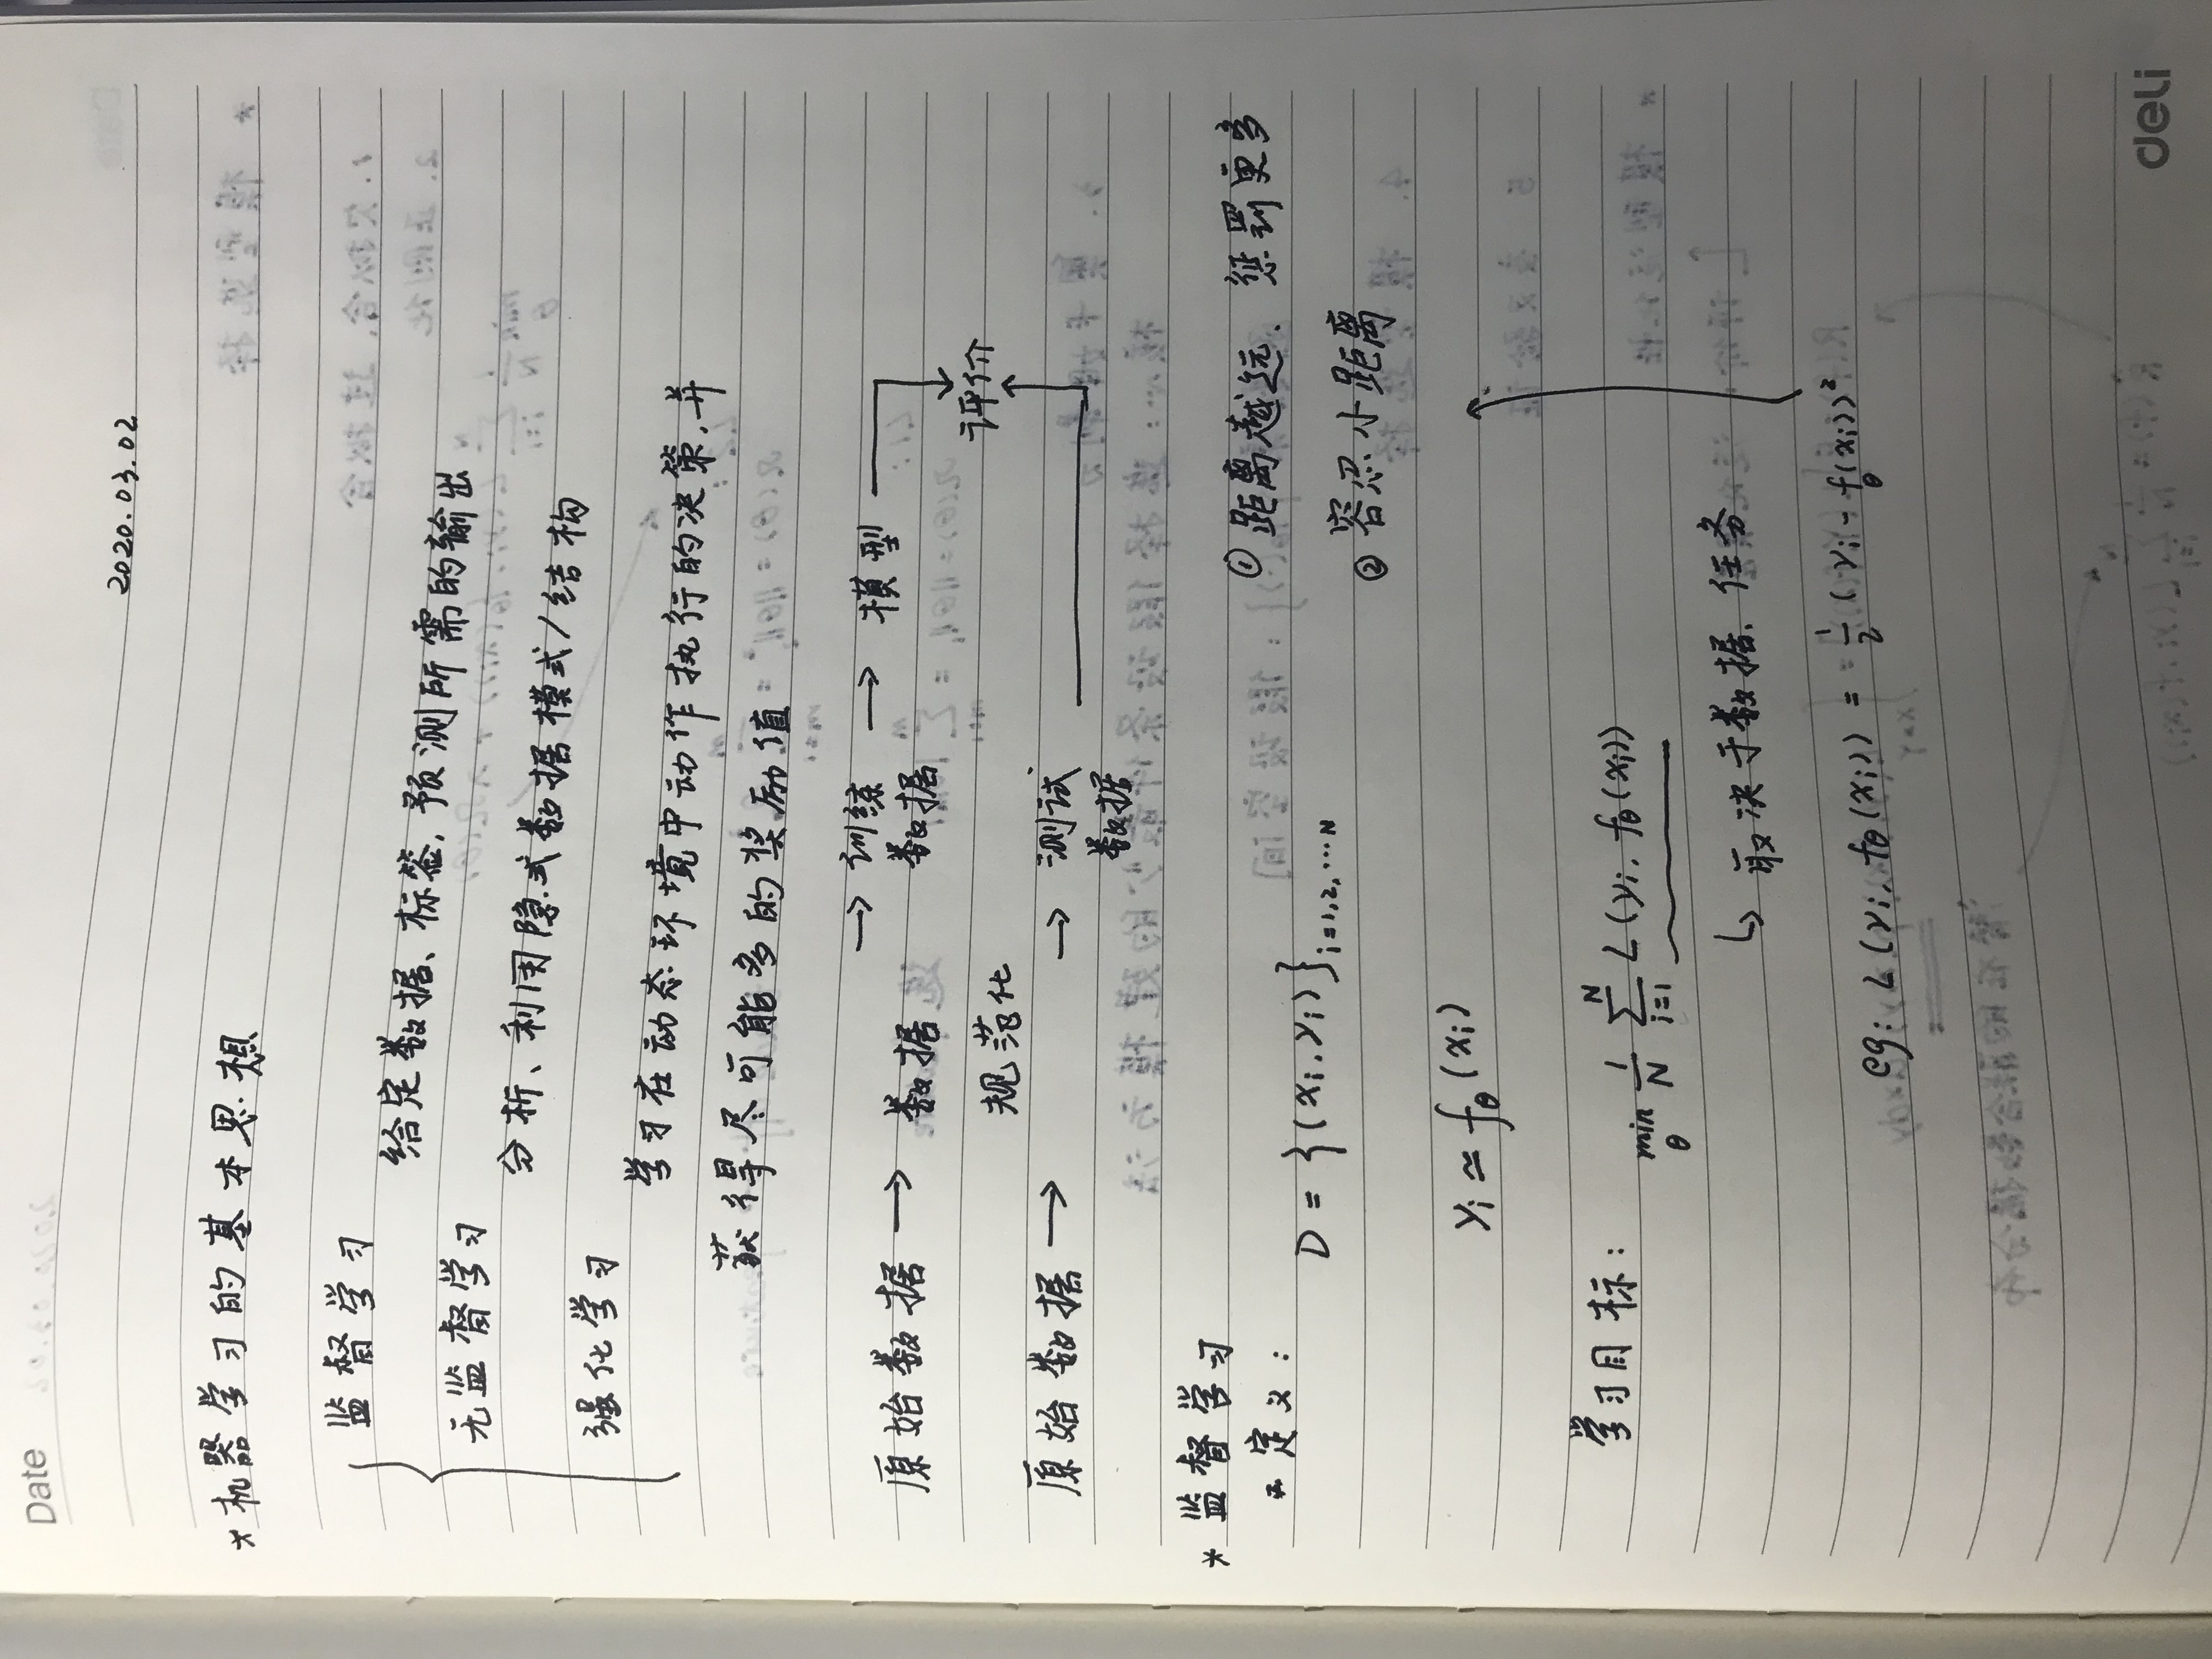 Date
2020.03.02
* 机器学习的基本思想
监督学习
给定数据、标签,预测所需的输出
无监督学习
分析、利用隐式数据模式/结构
强化学习
学习在动态环境中动作执行的决策,并
获得尽可能多的奖励值
原始数据 → 数据 → 训练 → 模型
数据
规范化
评价
原始数据 → → 测试
数据
* 监督学习
定义:
D = {(xi, yi)}i=1,2,…N
① 距离越远、惩罚更多
② 容忍小距离
yi ≃ fθ(xi)
学习目标: min θ 1/N ∑ i=1 N L(yi, fθ(xi))
↳ 取决于数据、任务
eg: L(yi, fθ(xi)) = 1/2 (yi - fθ(xi))²
deli